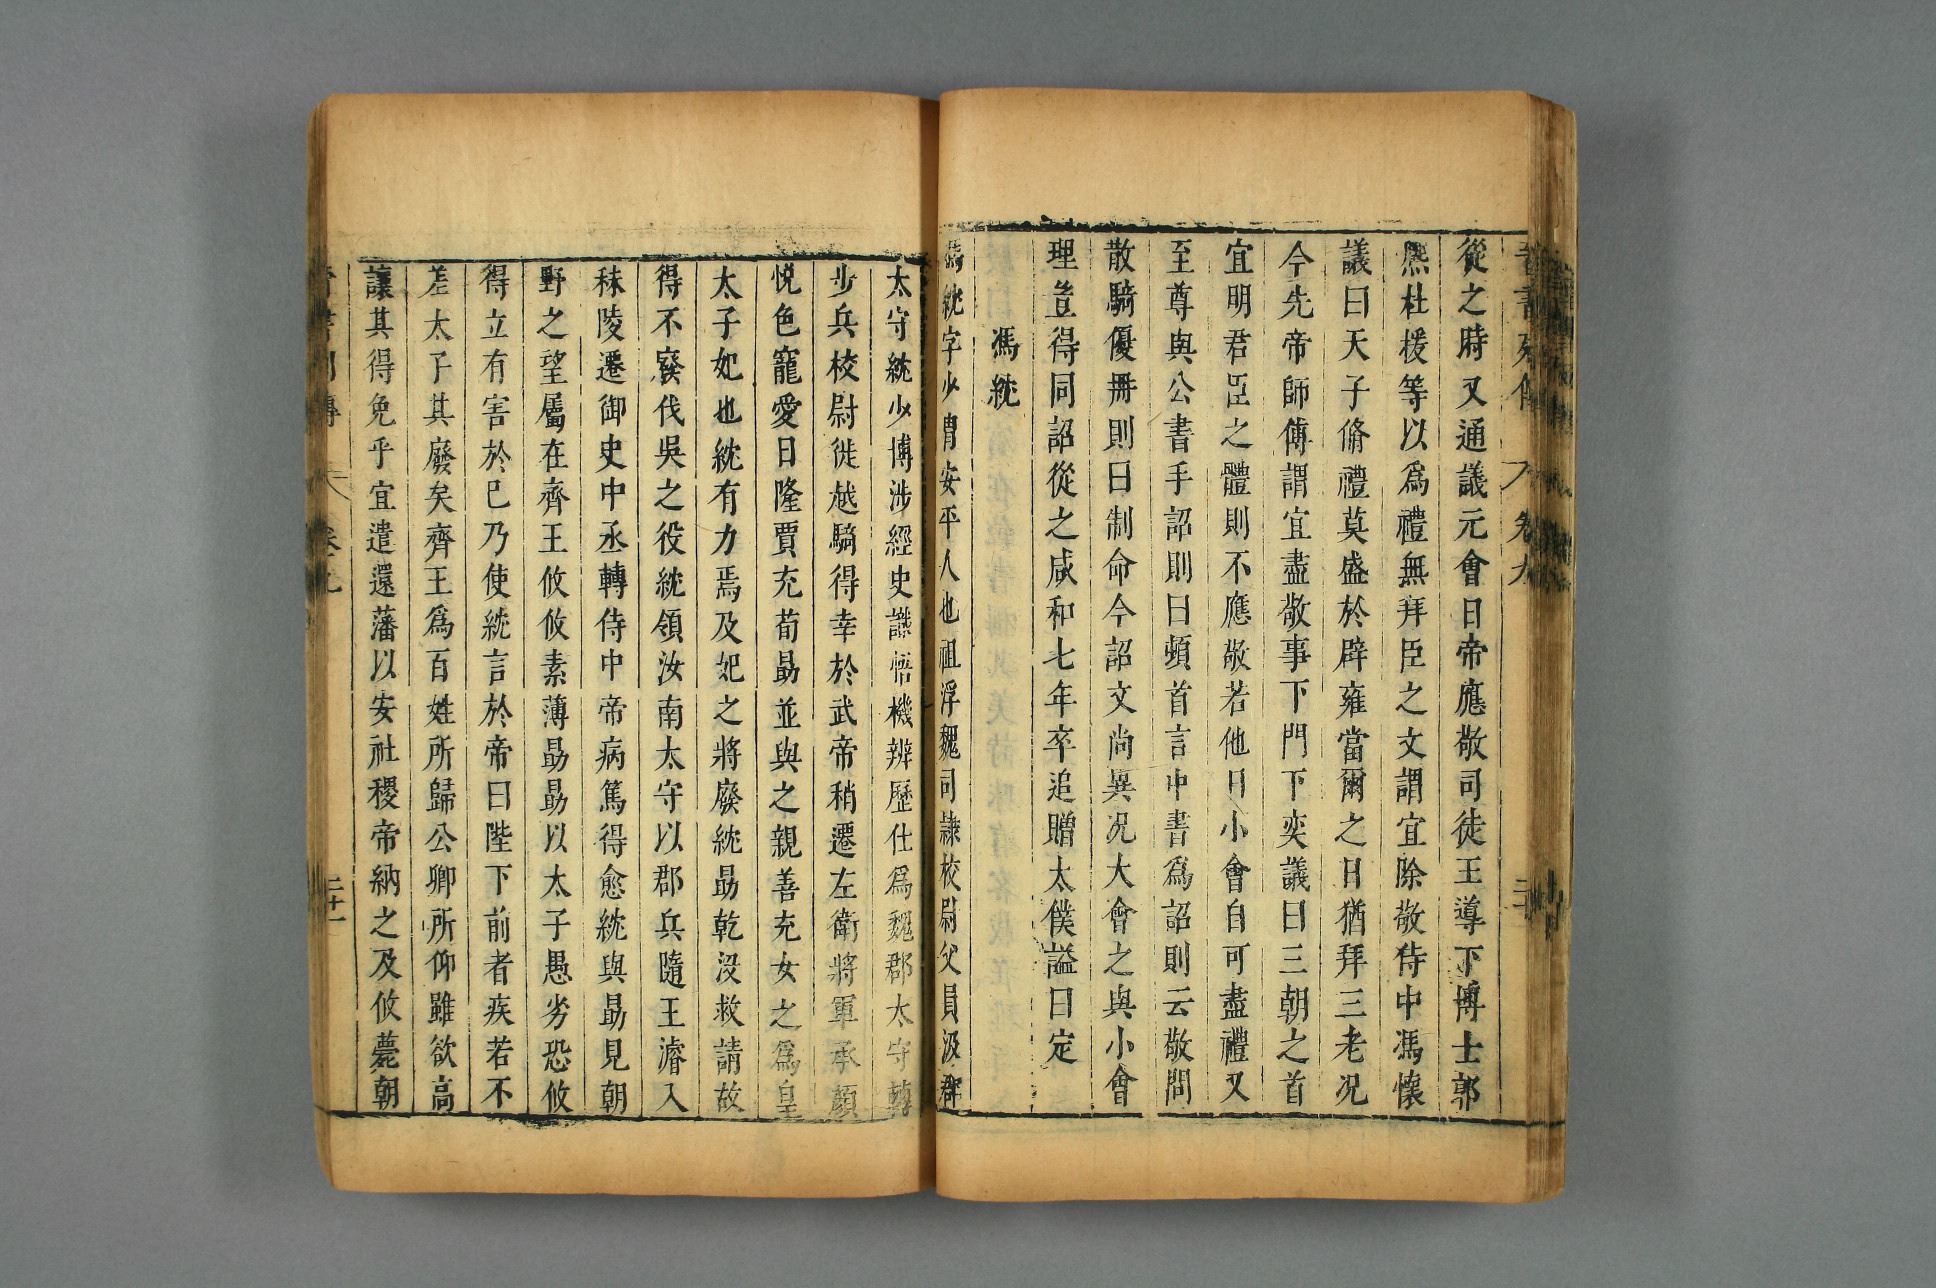 晉書列傳 卷九
從之時又通議元會日帝應敬司徒王導下博士郭
熈杜援等以爲禮無拜臣之文謂宜除敬侍中馮懷
議曰天子脩禮莫盛於辟雍當爾之日猶拜三老况
今先帝師傅謂宜盡敬事下門下奕議曰三朝之首
宜明君臣之體則不應敬若他日小會自可盡禮又
至尊與公書手詔則曰頓首言中書爲詔則云敬問
散騎優册則曰制命今詔文尚異况大會之與小會
理豈得同詔從之咸和七年卒追贈太僕謚曰定
馮紞
馮紞字少胄安平人也祖浮魏司隷校尉父員汲郡
太守紞少博涉經史識悟機辨歷仕爲魏郡太守轉
步兵校尉徙越騎得幸於武帝稍遷左衛將軍承顏
悦色寵愛日隆賈充荀勗並與之親善充女之爲皇
太子妃也紞有力焉及妃之將廢紞勗乾没救請故
得不廢伐吳之役紞領汝南太守以郡兵隨王濬入
秣陵遷御史中丞轉侍中帝病篤得愈紞與勗見朝
野之望屬在齊王攸攸素薄勗勗以太子愚劣恐攸
得立有害於己乃使紞言於帝曰陛下前者疾若不
差太子其廢矣齊王爲百姓所歸公卿所仰雖欲高
讓其得免乎宜遣還藩以安社稷帝納之及攸薨朝
晉書列傳 卷九 二十一